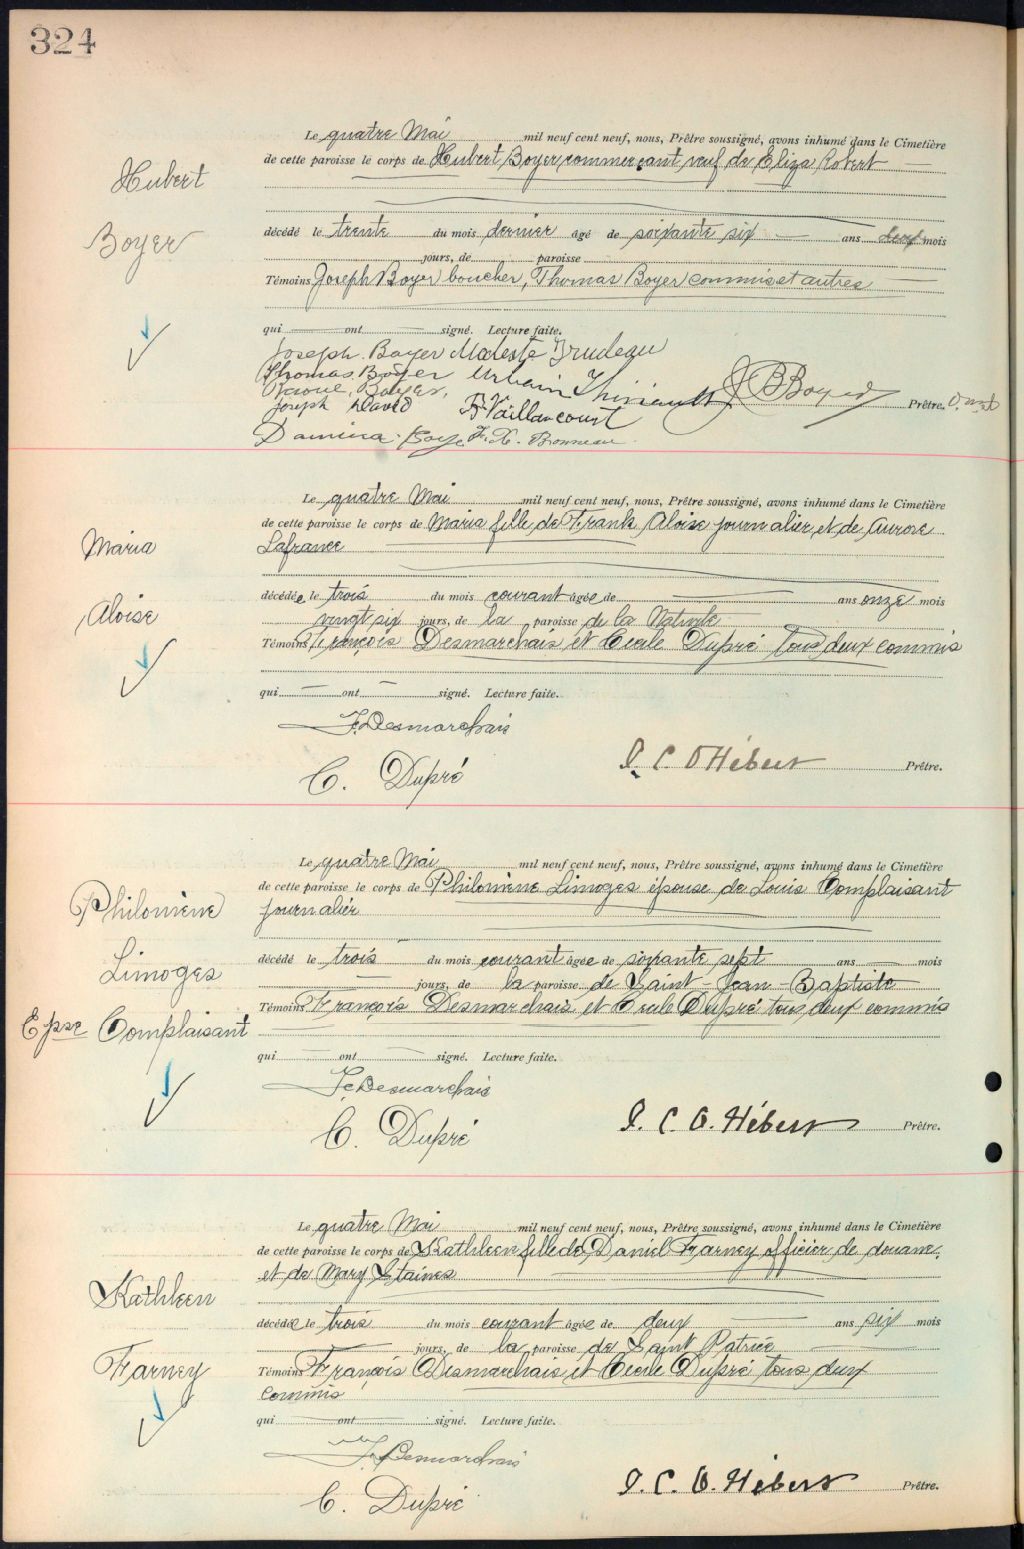 324
Hubert
Boyer
Le quatre Mai mil neuf cent neuf, nous, Prêtre soussigné, avons inhumé dans le Cimetière
de cette paroisse le corps de Hubert Boyer, commerçant, veuf de Eliza Robert
décédé le trente du mois dernier âgé de soixante six ans deux mois
jours, de paroisse
Témoins Joseph Boyer boucher, Thomas Boyer commis et autres
qui ont signé. Lecture faite.
Joseph Boyer Modeste Trudeau
Thomas Boyer Urbain Thiriault
Raoul Boyer,
Joseph David Vaillancourt
Boyer Prêtre.
Damina Boye F. X. Bonneau
Maria
Aloise
Le quatre Mai mil neuf cent neuf, nous, Prêtre soussigné, avons inhumé dans le Cimetière
de cette paroisse le corps de Maria fille de Frank Aloise journalier, et de Aurore
Lafrance
décédée le trois du mois courant âgée de ans onze mois
vingt six jours, de la paroisse de la Nativité
Témoins François Desmarchais et Cecile Dupré tous deux commis
qui ont signé. Lecture faite.
F. Desmarchais
C. Dupré
J. C. O. Hébert Prêtre.
Philomène
Limoges
Epse Complaisant
Le quatre Mai mil neuf cent neuf, nous, Prêtre soussigné, avons inhumé dans le Cimetière
de cette paroisse le corps de Philomène Limoges épouse de Louis Complaisant
journalier
décédé le trois du mois courant âgée de soixante sept ans mois
jours, de la paroisse de Saint-Jean-Baptiste
Témoins François Desmarchais et Cecile Dupré tous deux commis
qui ont signé. Lecture faite.
F. Desmarchais
C. Dupré
J. C. O. Hébert Prêtre.
Kathleen
Farney
Le quatre Mai mil neuf cent neuf, nous, Prêtre soussigné, avons inhumé dans le Cimetière
de cette paroisse le corps de Kathleen fille de Daniel Farney officier de douane,
et de Mary Staines
décédée le trois du mois courant âgée de deux ans six mois
jours, de la paroisse de Saint Patrice
Témoins François Desmarchais et Cecile Dupré tous deux
commis
qui ont signé. Lecture faite.
F. Desmarchais
C. Dupré
J. C. O. Hébert Prêtre.